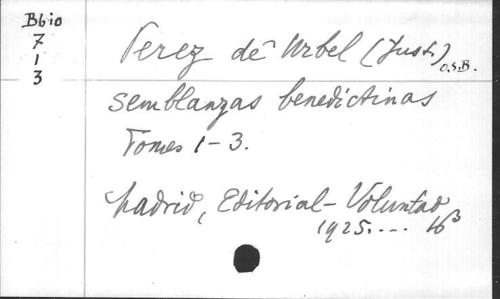 Bbio
7
1
3
Perez de Urbel (Just.)
O.S.B.
Semblanzas benedictinas
Tomes 1-3.
Madrid, Editorial-Voluntad
1925.... 16³